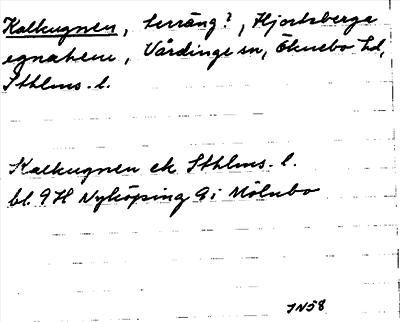 Kalkugnen, terräng?, Hjortsberga
egnahem, Vårdinge sn, Öknebo hd,
Sthlms. l.
Kalkugnen ek Sthlms. l.
bl. 9H Nyköping 9i Mölnbo
JN58